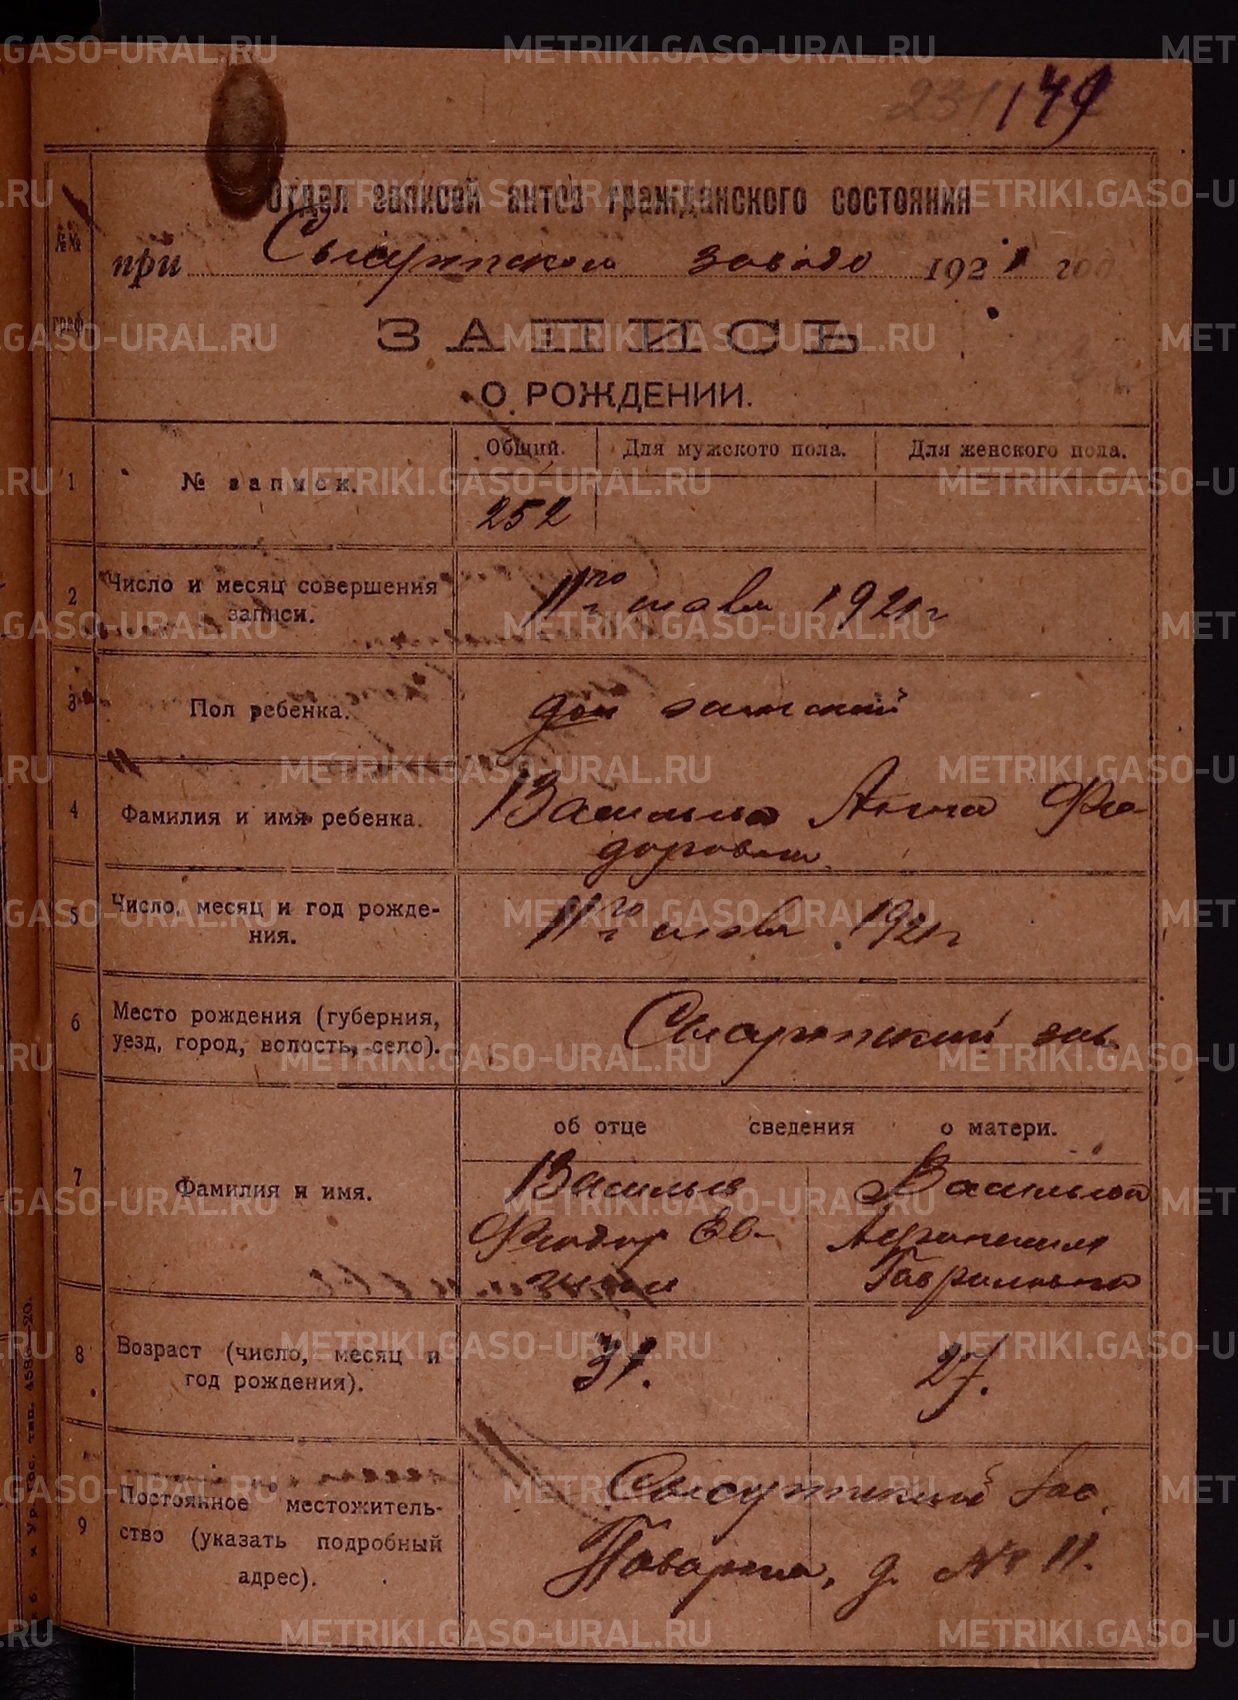 231 149
Отдел записей актов гражданского состояния
при Сысертском заводе 1921 год
№№ граф
ЗАПИСЬ
О РОЖДЕНИИ.
Общий. Для мужского пола. Для женского пола.
1 № записи.
252
2 Число и месяц совершения
записи.
11го июля 1921 г
3 Пол ребенка.
женский
4 Фамилия и имя ребенка.
Васильева Анна Фео-
доровна
5 Число, месяц и год рожде-
ния.
11го июля 1921 г
6 Место рождения (губерния,
уезд, город, волость, село).
Сысертский зав.
об отце сведения о матери.
7 Фамилия и имя.
Васильев
Феодор Ев-
Васильева
Гавриловна
8 Возраст (число, месяц и
год рождения).
31. 27.
9 Постоянное местожитель-
ство (указать подробный
адрес).
Сысертский зав.
д. № 11.
METRIKI.GASO-URAL.RU